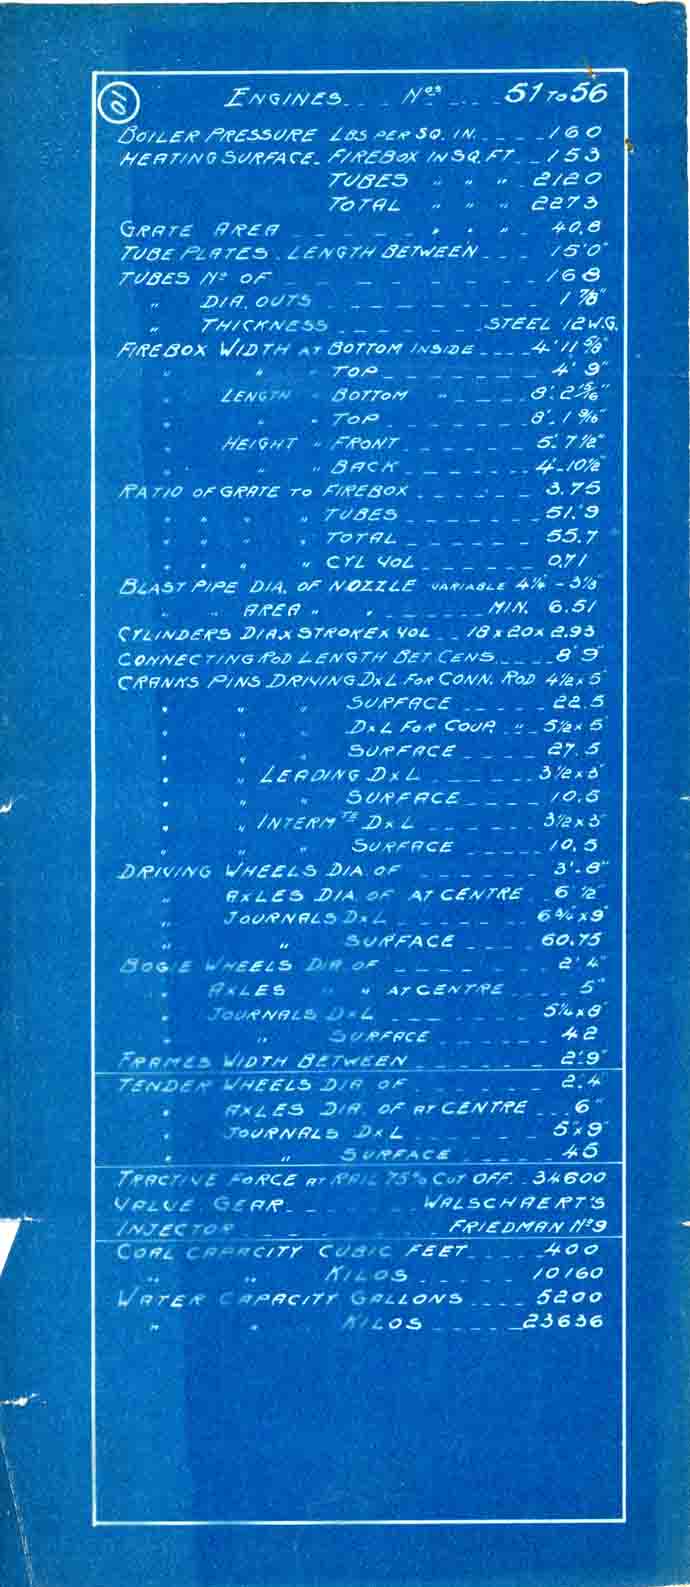 10
ENGINES Nos 51 TO 56
BOILER PRESSURE LBS PER SQ. IN. 160
HEATING SURFACE. FIREBOX IN SQ. FT 153
TUBES " " " 2120
TOTAL " " " 2273
GRATE AREA " " " 40.8
TUBE PLATES. LENGTH BETWEEN 15'0"
TUBES No OF 168
" DIA. OUTS 1 7/8"
" THICKNESS STEEL 12 W.G.
FIREBOX WIDTH AT BOTTOM INSIDE 4'11 5/8"
" " " TOP 4' 9"
" LENGTH " BOTTOM " 8'. 2 15/16"
" " " TOP 8'. 1 9/16"
" HEIGHT " FRONT 5'. 7 1/2"
" " " BACK 4'-10 1/2"
RATIO OF GRATE TO FIREBOX 3.75
" " " " TUBES 51.9
" " " " TOTAL 55.7
" " " " CYL VOL 0.71
BLAST PIPE DIA. OF NOZZLE VARIABLE
" " AREA " " MIN. 6.51
CYLINDERS DIA x STROKE x VOL 18 x 20 x 2.93
CONNECTING ROD LENGTH BET CENS 8' 9"
CRANKS PINS DRIVING D x L FOR CONN. ROD 4 1/2 x 5"
" " " SURFACE 22.5
" " " D x L FOR COUP. " 5 1/2 x 5"
" " " SURFACE 27.5
" " LEADING D x L 3 1/2 x 3"
" " " SURFACE 10.5
" " INTERMTE D x L 3 1/2 x 3"
" " " SURFACE 10.5
DRIVING WHEELS DIA OF 3'-8"
" AXLES DIA OF AT CENTRE 6 1/2"
" JOURNALS D x L 6 3/4" x 9"
" " SURFACE 60.75
BOGIE WHEELS DIA OF 2' 4"
" AXLES " " AT CENTRE 5"
" JOURNALS D x L 5 1/4 x 8"
" " SURFACE 42
FRAMES WIDTH BETWEEN 2'.9"
TENDER WHEELS DIA OF 2'.4"
" AXLES DIA. OF AT CENTRE 6"
" JOURNALS D x L 5" x 9"
" " SURFACE 45
TRACTIVE FORCE AT RAIL 75% CUT OFF. 34600
VALVE GEAR WALSCHAERT'S
INJECTOR FRIEDMAN No 9
COAL CAPACITY CUBIC FEET 400
" " KILOS 10160
WATER CAPACITY GALLONS 5200
" " KILOS 23636